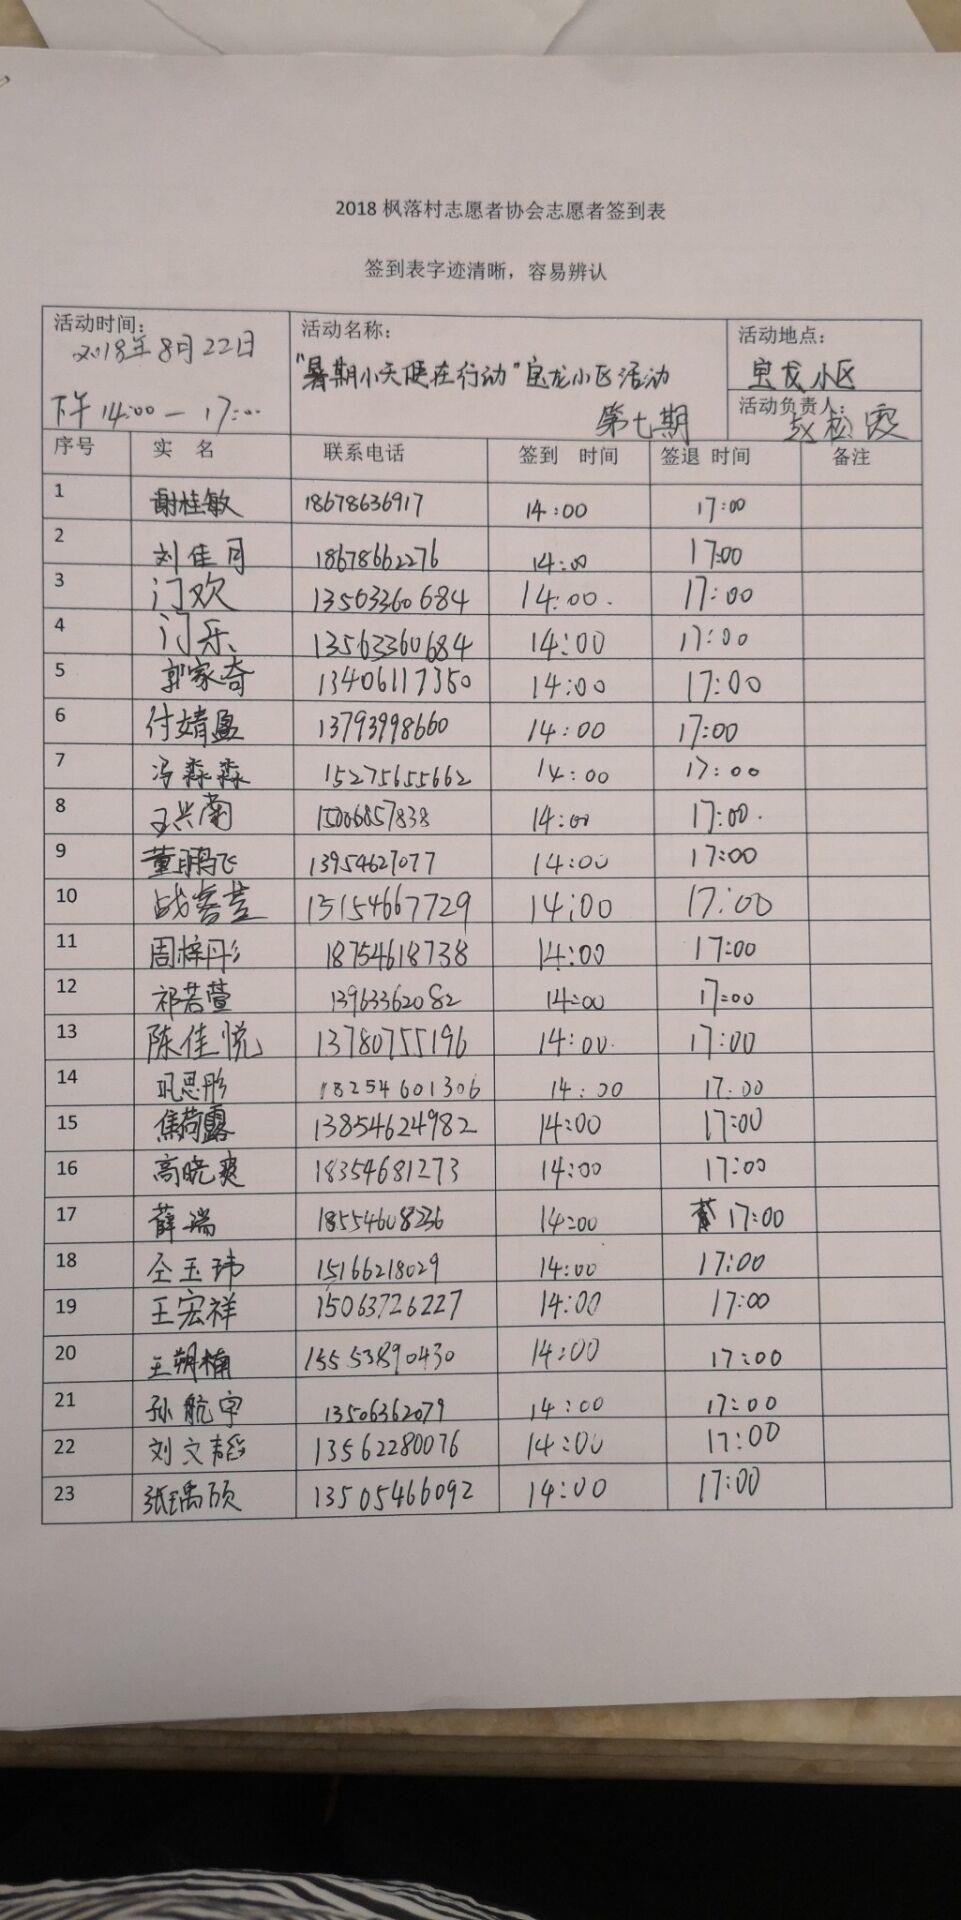 2018 枫落村志愿者协会志愿者签到表
签到表字迹清晰，容易辨认
活动时间： 活动名称： 活动地点：
2018年8月22日 "暑期小天使在行动"宝龙小区活动 宝龙小区
下午 14:00 — 17:00 第七期 活动负责人：
序号 实 名 联系电话 签到 时间 签退 时间 备注
1 谢桂敏 18678636917 14:00 17:00
2 刘佳月 18678662276 14:00 17:00
3 门欢 13563360684 14:00. 17:00
4 门乐 13563360684 14:00 17:00
5 郭家奇 13406117350 14:00 17:00
6 付婧盈 13793998660 14:00 17:00
7 冯淼淼 15275655662 14:00 17:00
8 王兴菊 15006857838 14:00 17:00.
9 董鹏飞 13954627077 14:00 17:00
10 13154667729 14:00 17:00
11 周梓彤 18754618738 14:00 17:00
12 祁若萱 13963362082 14:00 17:00
13 陈佳悦 13780755196 14:00. 17:00
14 巩思彤 18254601306 14:00 17:00
15 焦荷露 13854624982 14:00 17:00
16 高晓爽 18354681273 14:00 17:00
17 薛瑞 18554608236 14:00 17:00
18 仝玉玮 15166218029 14:00 17:00
19 王宏祥 15063726227 14:00 17:00
20 王朔楠 15553890430 14:00 17:00
21 孙航宇 13506362079 14:00 17:00
22 刘文韬 13562280076 14:00 17:00
23 张瑀硕 13505466092 14:00 17:00